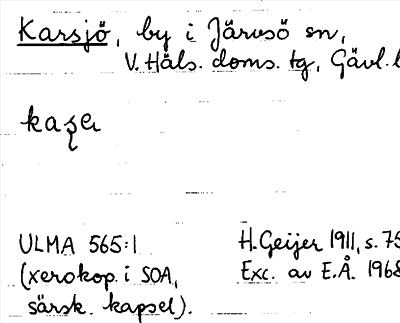 Karsjö, by i Järvsö sn,
V. Häls. doms. tg, Gävl.
ULMA 565:1
(xerokop. i SOA,
särsk. kapsel).
H. Geijer 1911, s. 75
Exc. av E.Å. 1968